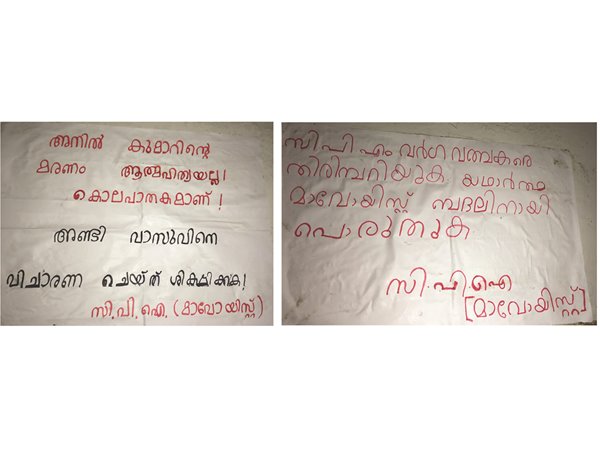 അനിൽ കുമാറിന്റെ
മരണം ആത്മഹത്യയല്ല!
കൊലപാതകമാണ്!
അണ്ടി വാസുവിനെ
വിചാരണ ചെയ്ത് ശിക്ഷിക്കുക!
സി.പി.ഐ. (മാവോയിസ്റ്റ്)
സി പി എം വർഗ വഞ്ചകരെ
തിരിച്ചറിയുക യഥാർത്ഥ
മാവോയിസ്റ്റ് ബദലിനായി
പൊരുതുക
സി.പി.ഐ
[മാവോയിസ്റ്റ്]